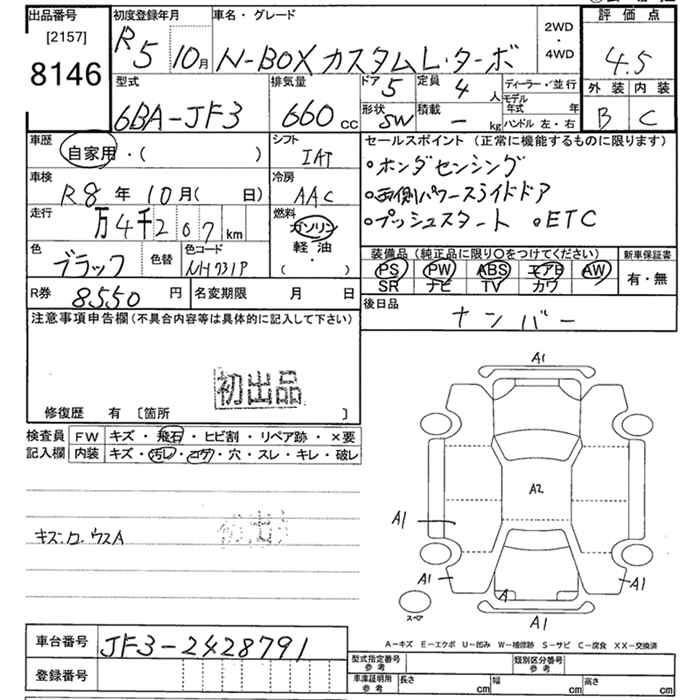 出品番号 初度登録年月 車名・グレード 2WD・4WD 評価点
[2157] R5 10月 N-BOX カスタムL・ターボ 4.5
8146 型式 排気量 ドア 5 定員 4人 ディーラー・並行 外装 内装
6BA-JF3 660cc 形状 SW 積載 - kg モデル年式 年 B C
ハンドル 左・右
車歴 自家用・( ) シフト IAT セールスポイント (正常に機能するものに限ります)
・ホンダセンシング
車検 R8年 10月( 日) 冷房 AAC ・両側パワースライドドア
走行 万4千207km 燃料 ガソリン 軽油 ( ) ・プッシュスタート ・ETC
色 ブラック 色替 色コード NH731P 装備品 (純正品に限り〇をつけてください) 新車保証書
PS PW ABS エアB AW 有・無
SR ナビ TV カワ
R券 8550円 名変期限 月 日 後日品
ナンバー
注意事項申告欄(不具合内容等は具体的に記入して下さい)
初出品
修復歴 有 [箇所 ]
検査員記入欄 FW キズ・飛石・ヒビ割・リペア跡・×要
内装 キズ・汚レ・コゲ・穴・スレ・キレ・破レ
キズ.
初出
A1
A2
A1
A1
A1
A
スペア
A1
A-キズ E-エクボ U-凹み W-補修跡 S-サビ C-腐食 XX-交換済
車台番号 JF3-2428791
登録番号
型式指定番号 参考 類別区分番号 参考
車庫証明用 参考 長さ cm 幅 cm 高さ cm